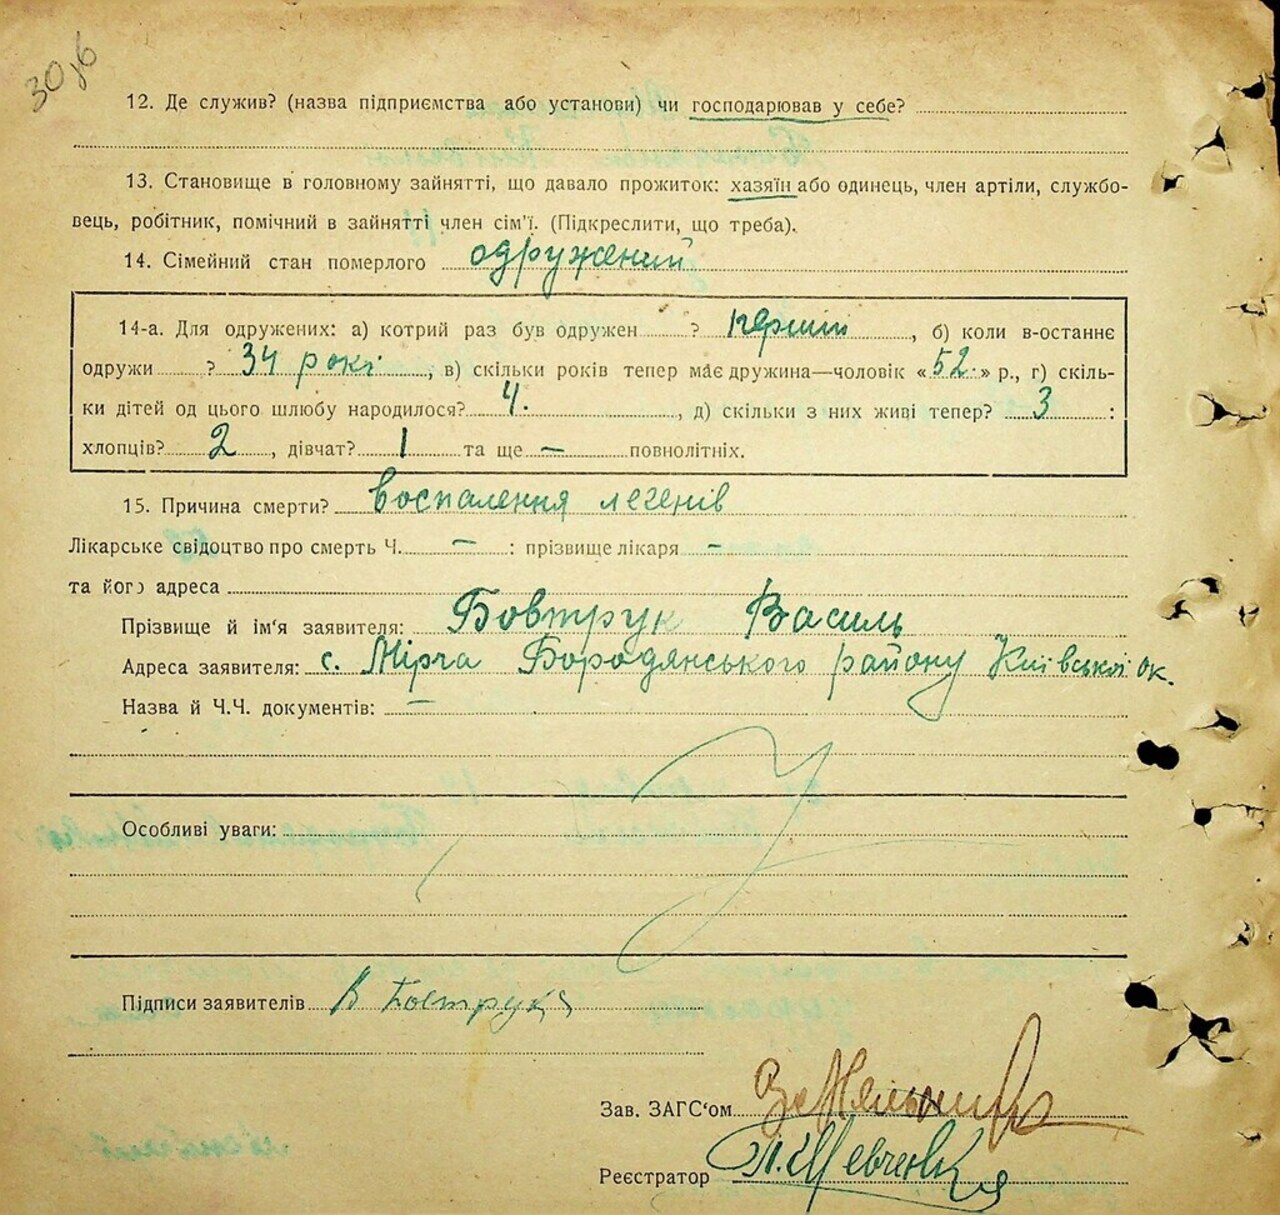 12. Де служив? (назва підприємства або установи) чи господарював у себе?
13. Становище в головному зайнятті, що давало прожиток: хазяїн або одинець, член артіли, службо-
вець, робітник, помічний в зайнятті член сім'ї. (Підкреслити, що треба).
14. Сімейний стан померлого одружений
14-а. Для одружених: а) котрий раз був одружен ? перший, б) коли в-останнє
одружи ? 34 рокі, в) скільки років тепер має дружина—чоловік «52.» р., г) скіль-
ки дітей од цього шлюбу народилося? 4. , д) скільки з них живі тепер? 3 :
хлопців? 2, дівчат? 1 та ще — повнолітніх.
15. Причина смерти? воспалення легенів
Лікарське свідоцтво про смерть Ч. — : прізвище лікаря –
та його адреса
Прізвище й ім'я заявителя: Бовтрук Василь
Адреса заявителя: с. Мірча Бородянського району Київської ок.
Назва й Ч.Ч. документів: —
Особливі уваги:
Підписи заявителів В Бовтрук
Зав. ЗАГС'ом
Реєстратор П. Шевченко